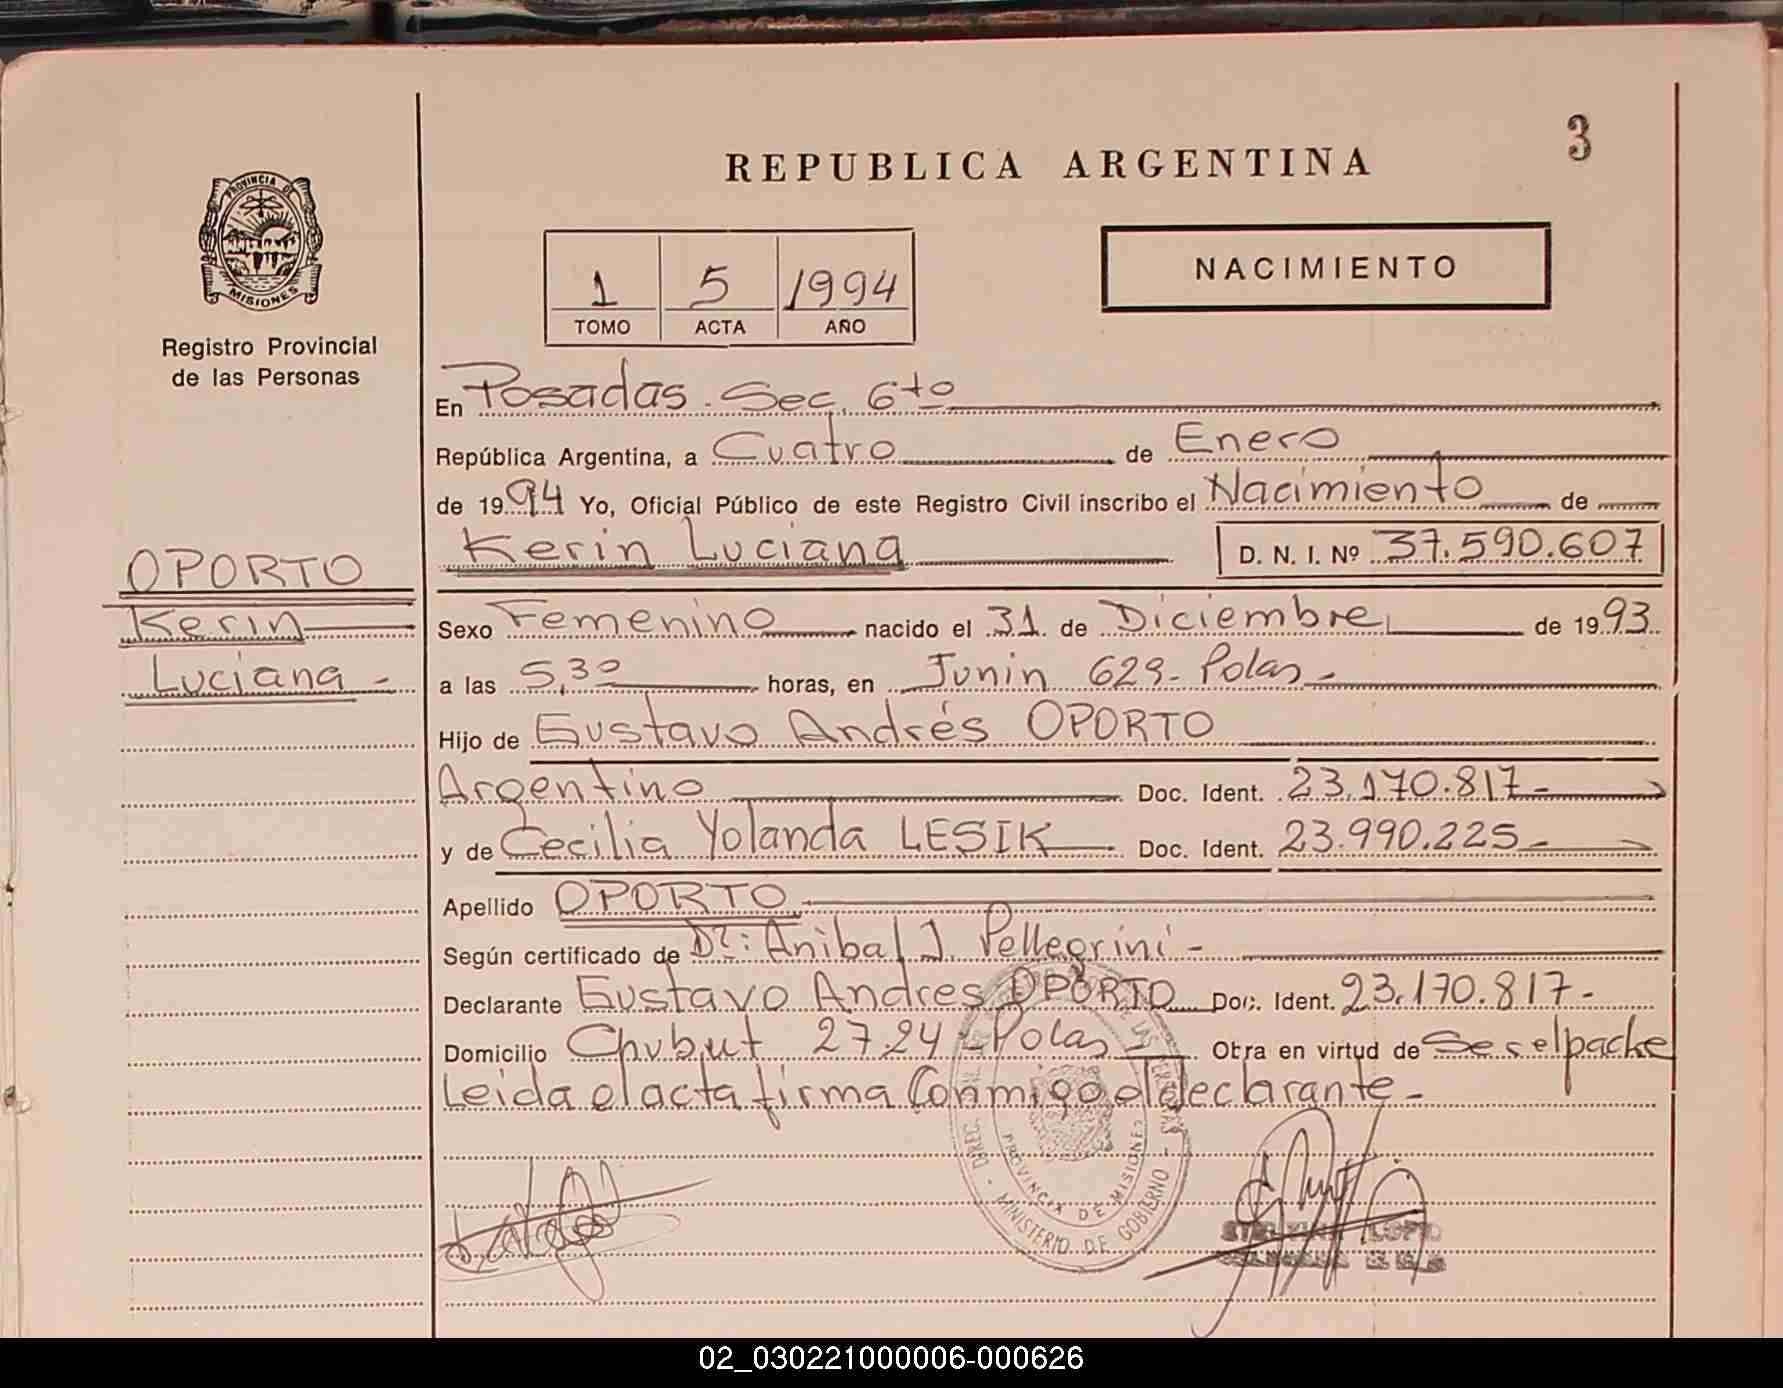 3
REPUBLICA ARGENTINA
PROVINCIA DE
MISIONES
Registro Provincial
de las Personas
1 5 1994
TOMO ACTA AÑO
NACIMIENTO
En Posadas. Sec. 6to
República Argentina, a Cuatro de Enero
de 1994 Yo, Oficial Público de este Registro Civil inscribo el Nacimiento de
Kerin Luciana D. N. I. Nº 37.590.607
OPORTO
Kerin
Luciana -
Sexo Femenino nacido el 31 de Diciembre de 1993
a las 5,30 horas, en Junin 629- Pdas -
Hijo de Gustavo Andrés OPORTO
Argentino Doc. Ident. 23.170.817-
y de Cecilia Yolanda LESIK Doc. Ident. 23.990.225-
Apellido OPORTO
Según certificado de Dr: Anibal J. Pellegrini -
Declarante Gustavo Andres OPORTO Doc. Ident. 23.170.817-
Domicilio Chubut 2724 - Pdas Obra en virtud de
Leida el acta firma Conmigo el declarante -
PROVINCIA DE MISIONES
MINISTERIO DE GOBIERNO
02_030221000006-000626